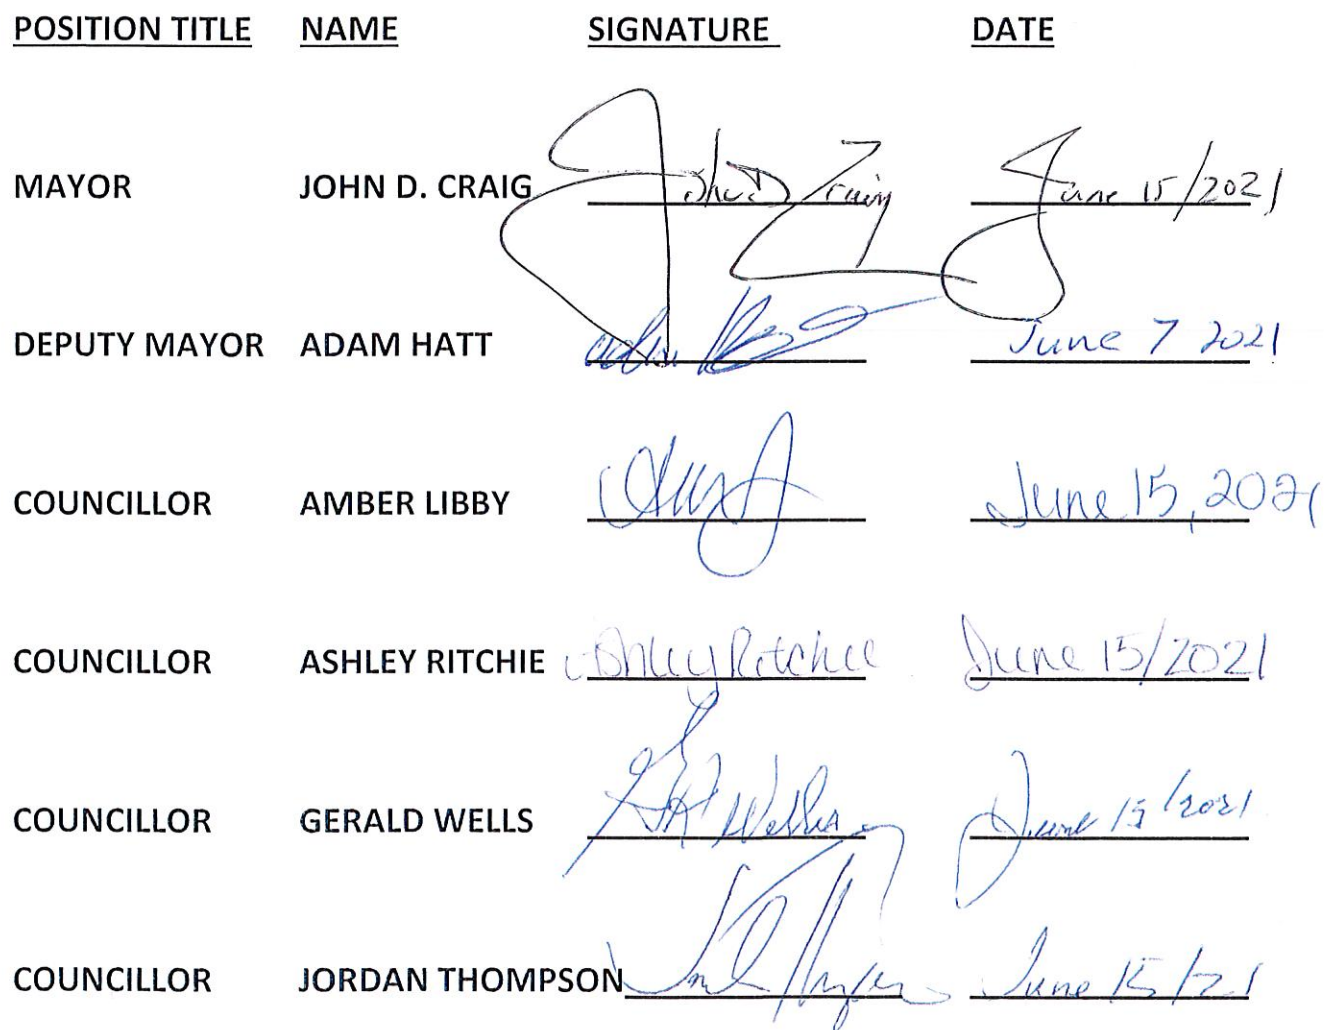 POSITION TITLE NAME SIGNATURE DATE
MAYOR JOHN D. CRAIG John D Craig June 15/2021
DEPUTY MAYOR ADAM HATT June 7 2021
COUNCILLOR AMBER LIBBY June 15, 2021
COUNCILLOR ASHLEY RITCHIE Ashley Ritchie June 15/2021
COUNCILLOR GERALD WELLS Wells June 15/2021
COUNCILLOR JORDAN THOMPSON June 15/21